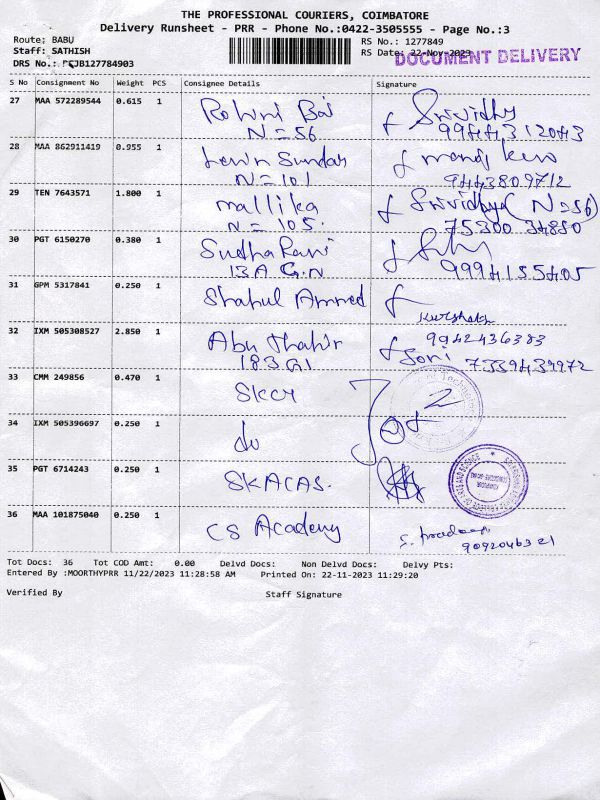 THE PROFESSIONAL COURIERS, COIMBATORE
Delivery Runsheet - PRR - Phone No.:0422-3505555 - Page No.:3
Route: BABU
Staff: SATHISH
RS No.: 1277849
RS Date: 22-Nov-2023
DOCUMENT DELIVERY
DRS No.:
S No Consignment No Weight PCS Consignee Details Signature
27 MAA 572289544 0.615 1 Rohini Bai
N=56
Srividhy
28 MAA 862911419 0.955 1 Sundar
N=101
9443809712
29 TEN 7643571 1.800 1 mallika
N=105.
Srividhya (N=56)
75300 34850
30 PGT 6150270 0.380 1 Sudha Rani
13A G.N
9994155405
31 GPM 5317841 0.250 1 Shahul Ahmed
32 IXM 505308527 2.850 1 Abu Thahir
183 G1
9942436383
7339439972
33 CMM 249856 0.470 1 Skcy
34 IXM 505396697 0.250 1 do
35 PGT 6714243 0.250 1 SKACAS.
36 MAA 101875040 0.250 1 CS Academy
S. Pradeep
9092046321
Tot Docs: 36 Tot COD Amt: 0.00 Delvd Docs: Non Delvd Docs: Delvy Pts:
Entered By :MOORTHYPRR 11/22/2023 11:28:58 AM Printed On: 22-11-2023 11:29:20
Verified By Staff Signature